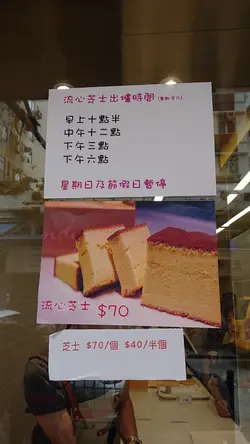 流心芝士出爐時間
早上十點半
中午十二點
下午三點
下午六點
星期日及節假日暫停
流心芝士 $70
芝士 $70/個 $40/半個